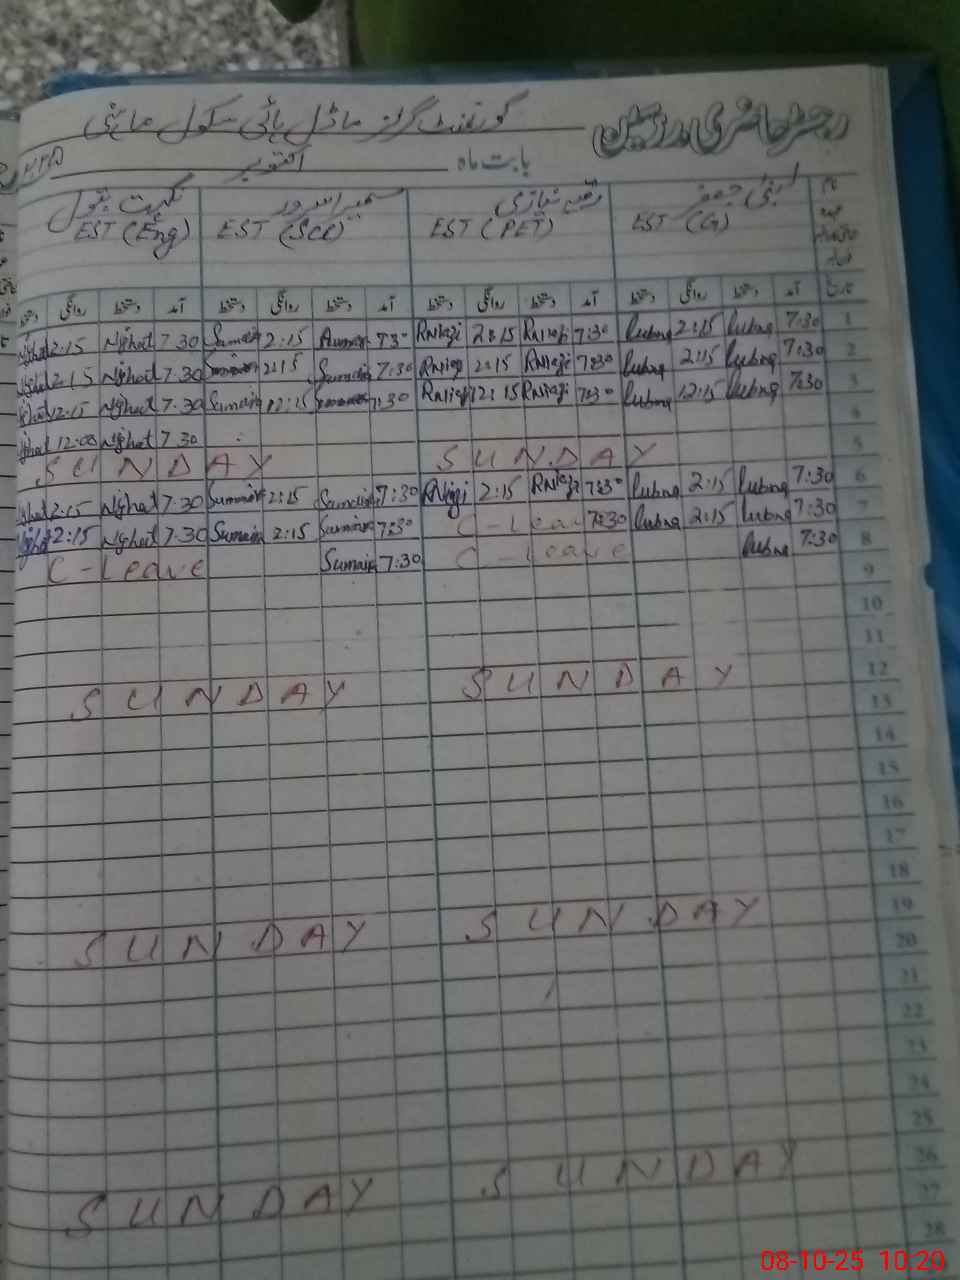 رجسٹر حاضری مدرسین گورنمنٹ گرلز ماڈل ہائی سکول
بابت ماہ اکتوبر
EST (G) EST (PET) EST (Sci) EST (Eng)
آمد دستخط روانگی دستخط آمد دستخط روانگی دستخط آمد دستخط روانگی دستخط آمد دستخط روانگی دستخط
1 7:30 Lubna 2:15 Lubna 7:30 RNiazi 2:15 RNiazi 7:30 2:15 Sumaira 7:30 Nighat 2:15 Nighat
2 7:30 Lubna 2:15 Lubna 7:30 RNiazi 2:15 RNiazi 7:30 Sumaira 2:15 7:30 Nighat 2:15 Nighat
3 7:30 Lubna 12:15 Lubna 7:30 RNiazi 12:15 RNiazi 7:30 12:15 Sumaira 7:30 Nighat 12:15 Nighat
4 7:30 Nighat 12:00 Nighat
5 SUNDAY SUNDAY
6 7:30 Lubna 2:15 Lubna 7:30 RNiazi 2:15 RNiazi 7:30 Sumaira 2:15 Sumaira 7:30 Nighat 2:15 Nighat
7 7:30 Lubna 2:15 Lubna 7:30 C-Leave 7:30 Sumaira 2:15 Sumaira 7:30 Nighat 2:15 Nighat
8 7:30 Lubna C-Leave 7:30 Sumaira C-Leave
9
10
11
12 SUNDAY SUNDAY
13
14
15
16
17
18
19 SUNDAY SUNDAY
20
21
22
23
24
25
26 SUNDAY SUNDAY
27
28
08-10-25 10:20